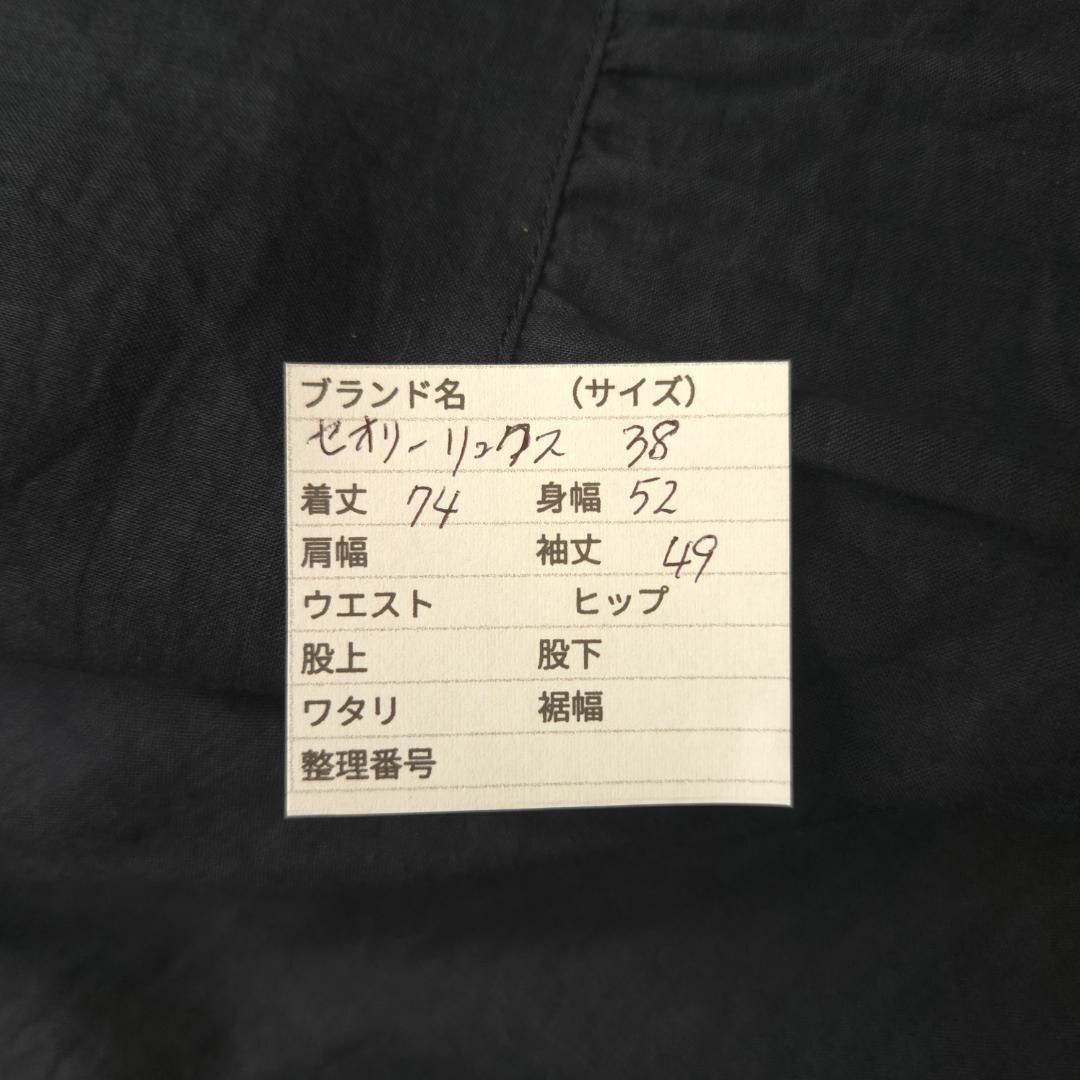 ブランド名 （サイズ）
セオリーリュクス 38
着丈 74 身幅 52
肩幅 袖丈 49
ウエスト ヒップ
股上 股下
ワタリ 裾幅
整理番号